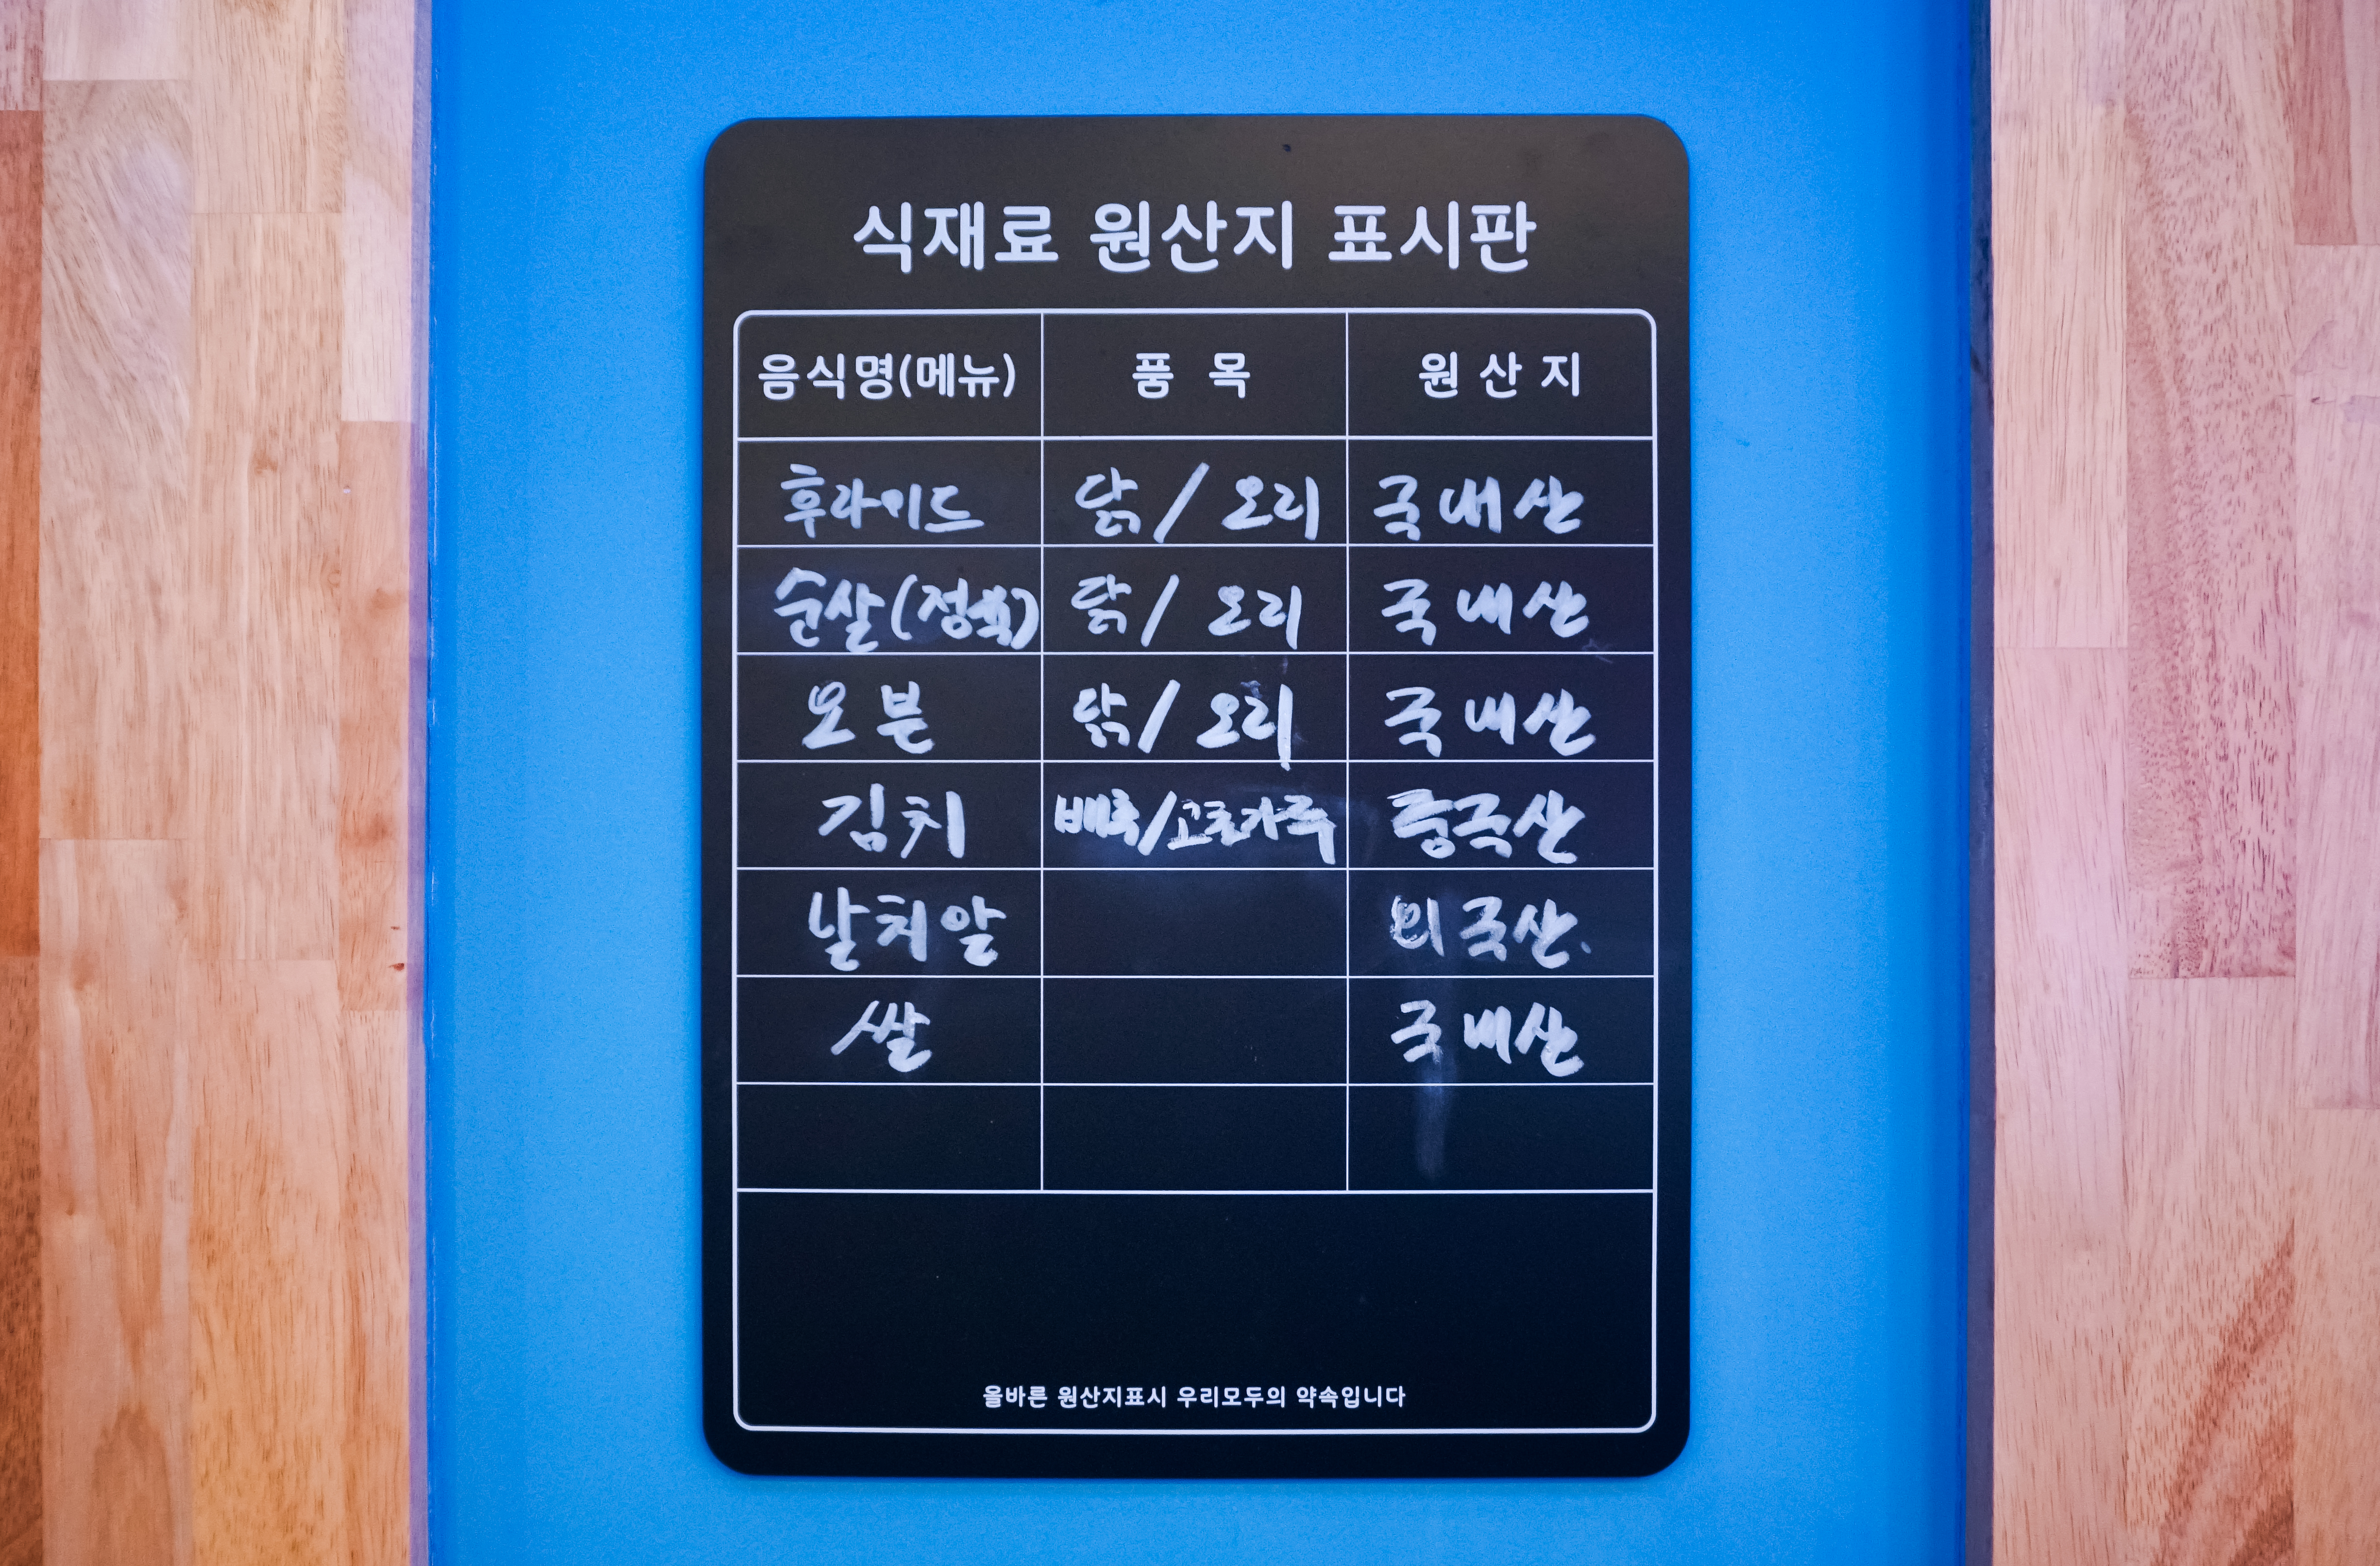 식재료 원산지 표시판
음식명(메뉴) 품 목 원 산 지
후라이드 닭/오리 국내산
순살(정육) 닭/오리 국내산
오븐 닭/오리 국내산
김치 배추/고춧가루 중국산
날치알 외국산.
쌀 국내산
올바른 원산지표시 우리모두의 약속입니다